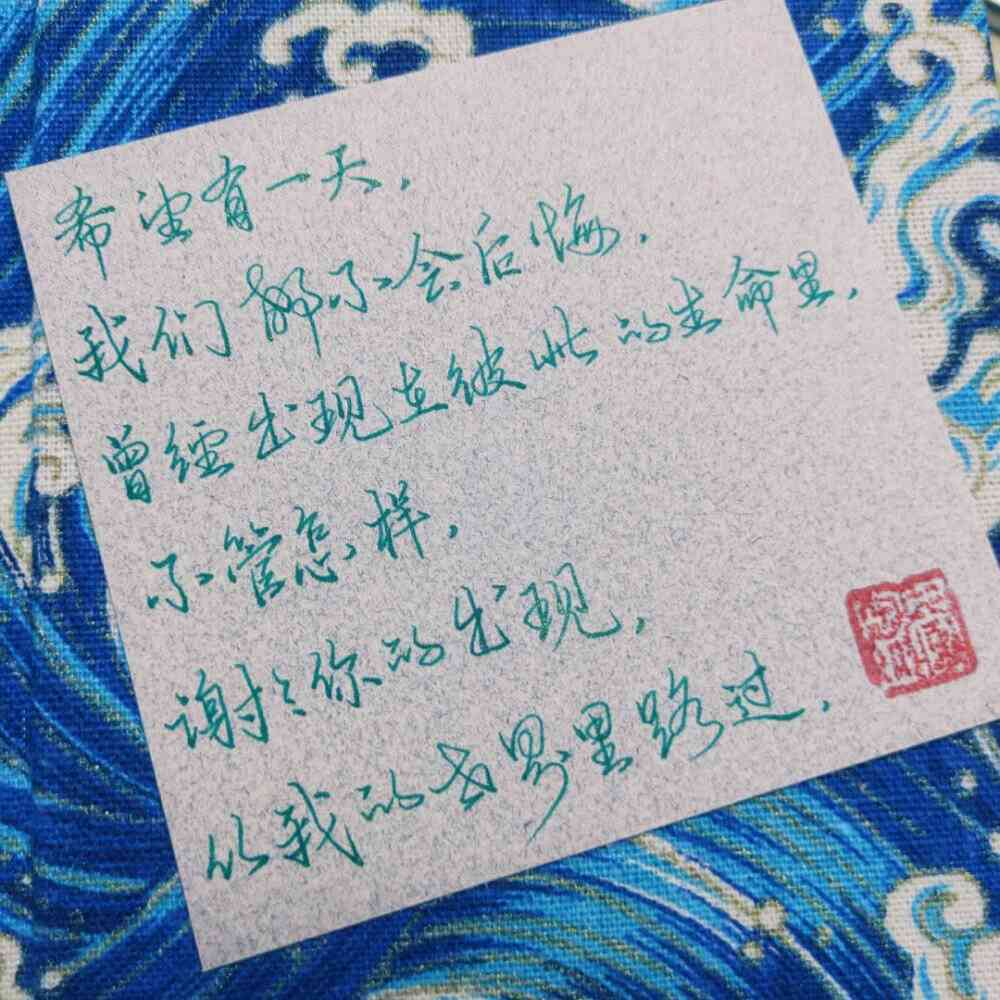 希望有一天，
我们都不会后悔，
曾经出现在彼此的生命里，
不管怎样，
谢谢你的出现，
从我的世界里路过，